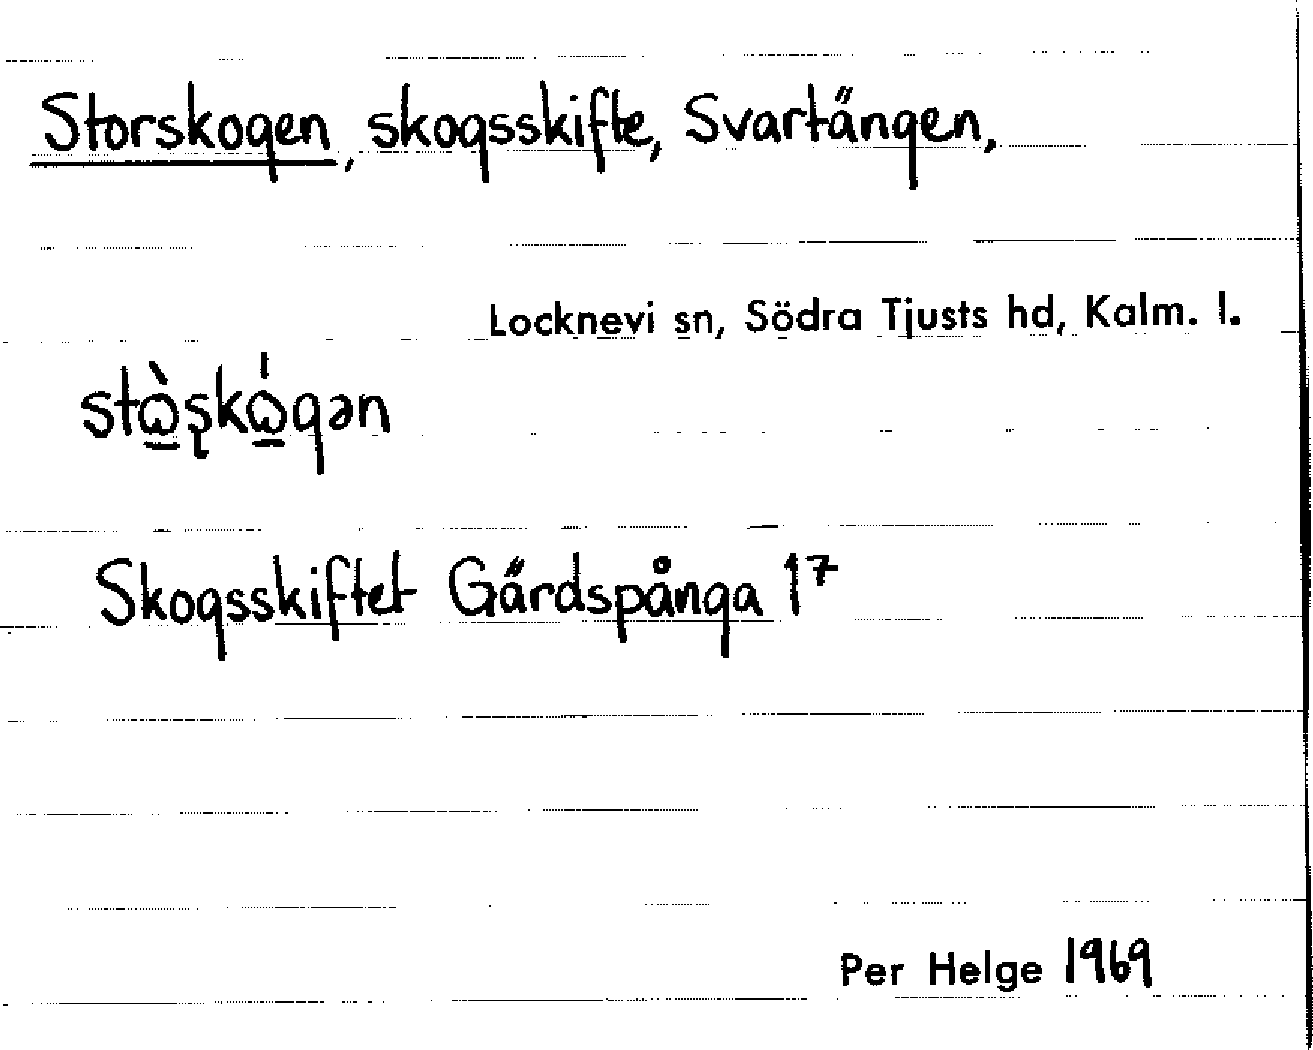 Storskogen, skogsskifte, Svartängen,
Locknevi sn, Södra Tjusts hd, Kalm. l.
stὼ̲ʂkώ̲gən
Skogsskiftet Gärdspånga 1⁷
Per Helge 1969